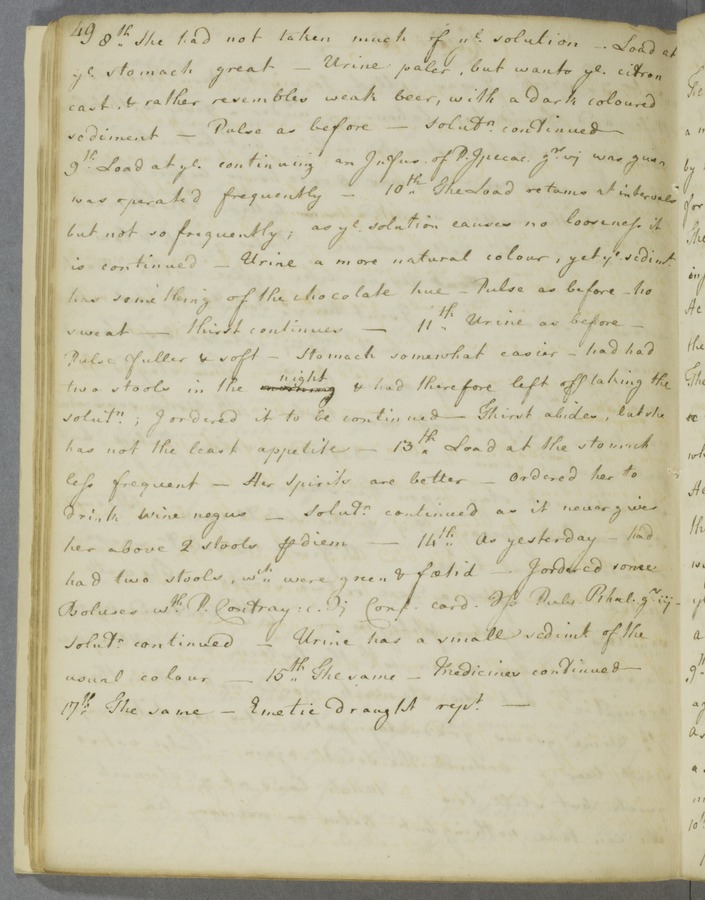 49 8th She had not taken much of ye. solution - Load at
ye. stomach great - Urine paler, but wants ye. citron
cast, & rather resembles weak beer, with a dark coloured
sediment - Pulse as before - Solutn. continued
9th Load at ye. continuing an Infus. of P. Ipecac. grs vj was given
was operated frequently - 10th The Load returns at intervals
but not so frequently; as ye. solution causes no looseness it
is continued - Urine a more natural colour, yet ye sedimt.
has something of the chocolate hue - Pulse as before - no
sweat - thirst continues - 11th Urine as before -
Pulse fuller & soft - Stomach somewhat easier - had had
two stools in the night & had therefore left off taking the
solutn; I ordered it to be continued - Thirst abides, but she
has not the least appetite - 13th Load at the stomach
less frequent - Her spirits are better - ordered her to
drink wine negus - Solutn. continued as it never gives
her above 2 stools ℘ diem - 14th As yesterday - had
had two stools, wch were green & fœtid - I ordered some
Boluses wth P. Contray: c. Conf. card. Pulv. Rhab. grs iij -
Solutn. continued - Urine has a small sedimt. of the
usual colour - 15th The same - Medicines continued
17th The same - Emetic Draught rept. -